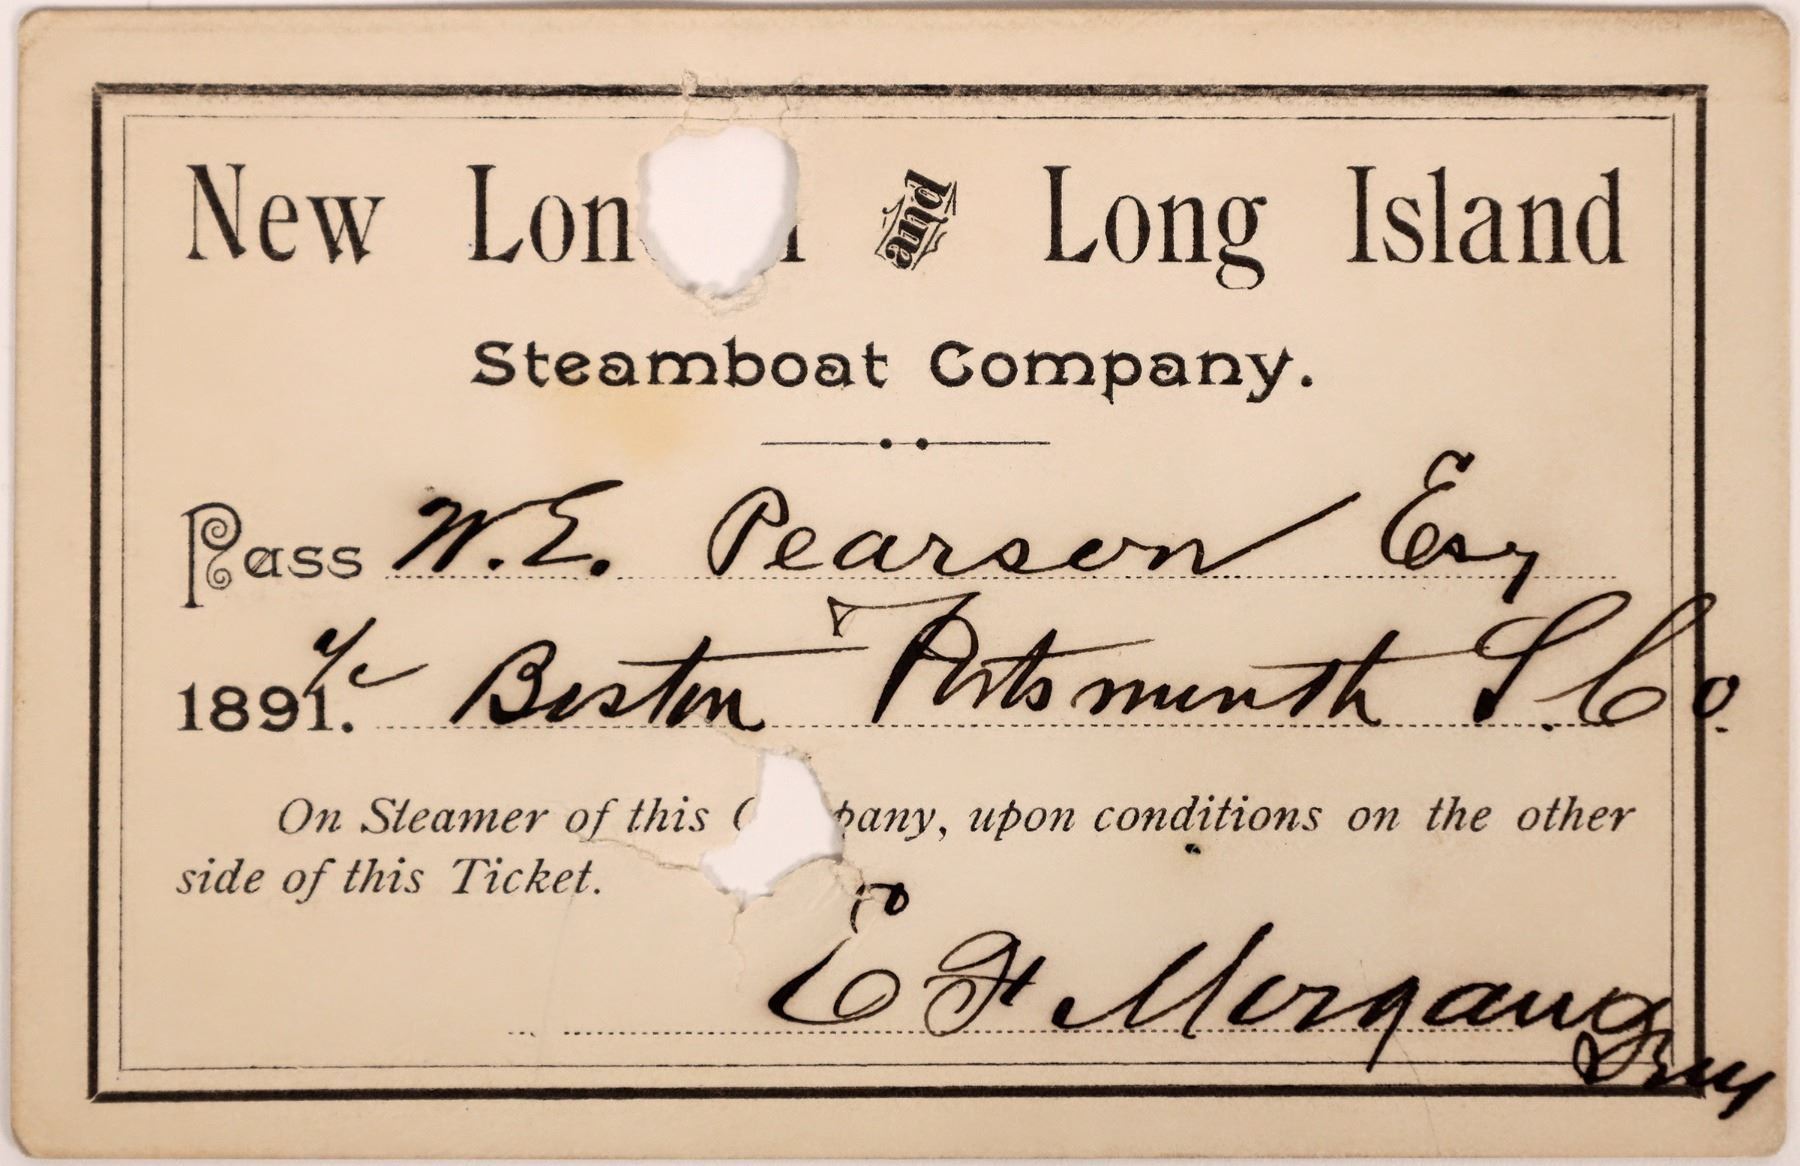 New Lon and Long Island
Steamboat Company.
Pass W. E. Pearson Esq
1891. a/c Boston Portsmouth S. Co.
On Steamer of this pany, upon conditions on the other
side of this Ticket.
E Morgan